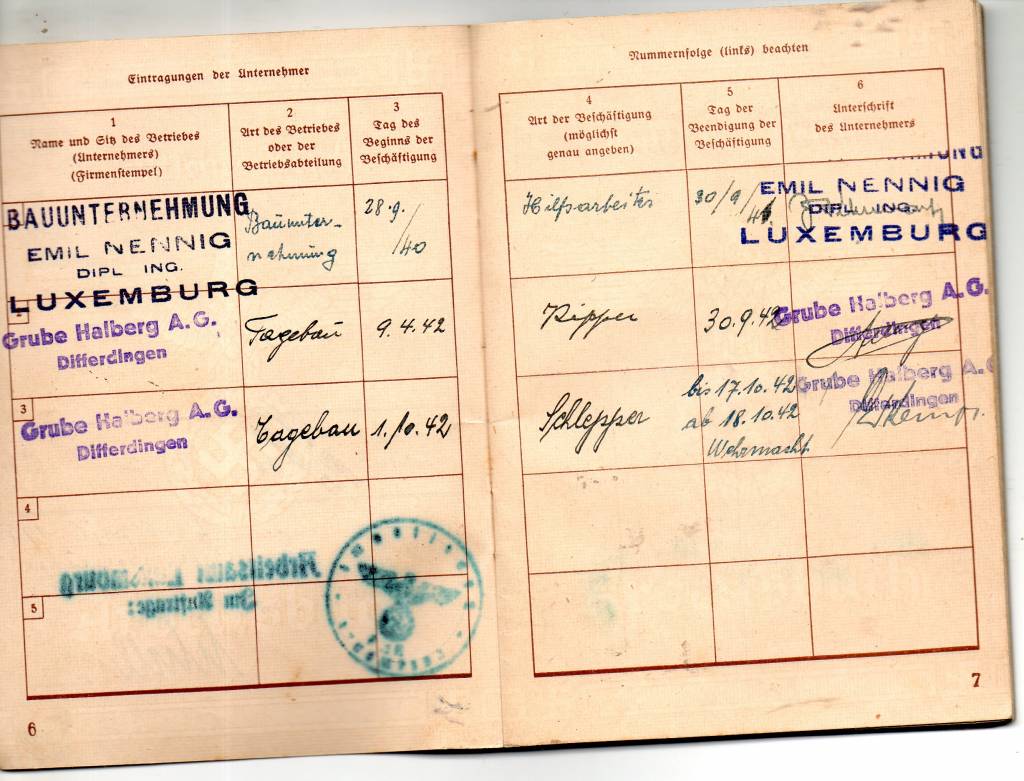 Eintragungen der Unternehmer
1
Name und Sitz des Betriebes
(Unternehmers)
(Firmenstempel)
2
Art des Betriebes
oder der
Betriebsabteilung
3
Tag des
Beginns der
Beschäftigung
BAUUNTERNEHMUNG
EMIL NENNIG
DIPL. ING.
LUXEMBURG
Bauunter-
nehmung
28.9.
/40
Grube Halberg A.G.
Differdingen
Tagebau
9.4.42
3
Grube Halberg A.G.
Differdingen
Tagebau
1.10.42
4
5
Arbeitsamt Luxemburg
Im Auftrage:
6
Nummernfolge (links) beachten
4
Art der Beschäftigung
(möglichst
genau angeben)
5
Tag der
Beendigung der
Beschäftigung
6
Unterschrift
des Unternehmers
Hilfsarbeiter
30/9/41
EMIL NENNIG
DIPL. ING.
LUXEMBURG
Kipper
30.9.42
Grube Halberg A.G.
Differdingen
Schlepper
bis 17.10.42
ab 18.10.42
Wehrmacht
Grube Halberg A.G.
Differdingen
7